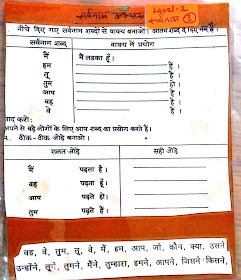 सर्वनाम अभ्यास
Level-2
सर्वनाम ①
नीचे दिए गए सर्वनाम शब्दों से वाक्य बनाओ।
सर्वनाम शब्द वाक्य में प्रयोग
मैं मैं लड़का हूँ।
हम हैं।
तू है।
तुम हो।
आप हैं।
वह है।
वे हैं।
याद करो:
अपने से बड़े लोगों के लिए आप शब्द का प्रयोग करते हैं।
ठीक-ठीक जोड़े बनाओ।
गलत-जोड़े सही-जोड़े
मैं पढ़ता है।
वह पढ़ता हूँ।
आप पढ़ते हो।
तुम पढ़ते हैं।
वह, वे, तुम, तू, वे, मैं, हम, आप, जो, कौन, क्या, उसने
उन्होंने, तूने, तुमने, मैंने, तुम्हारा, हमने, आपने, जिसने, किसने,